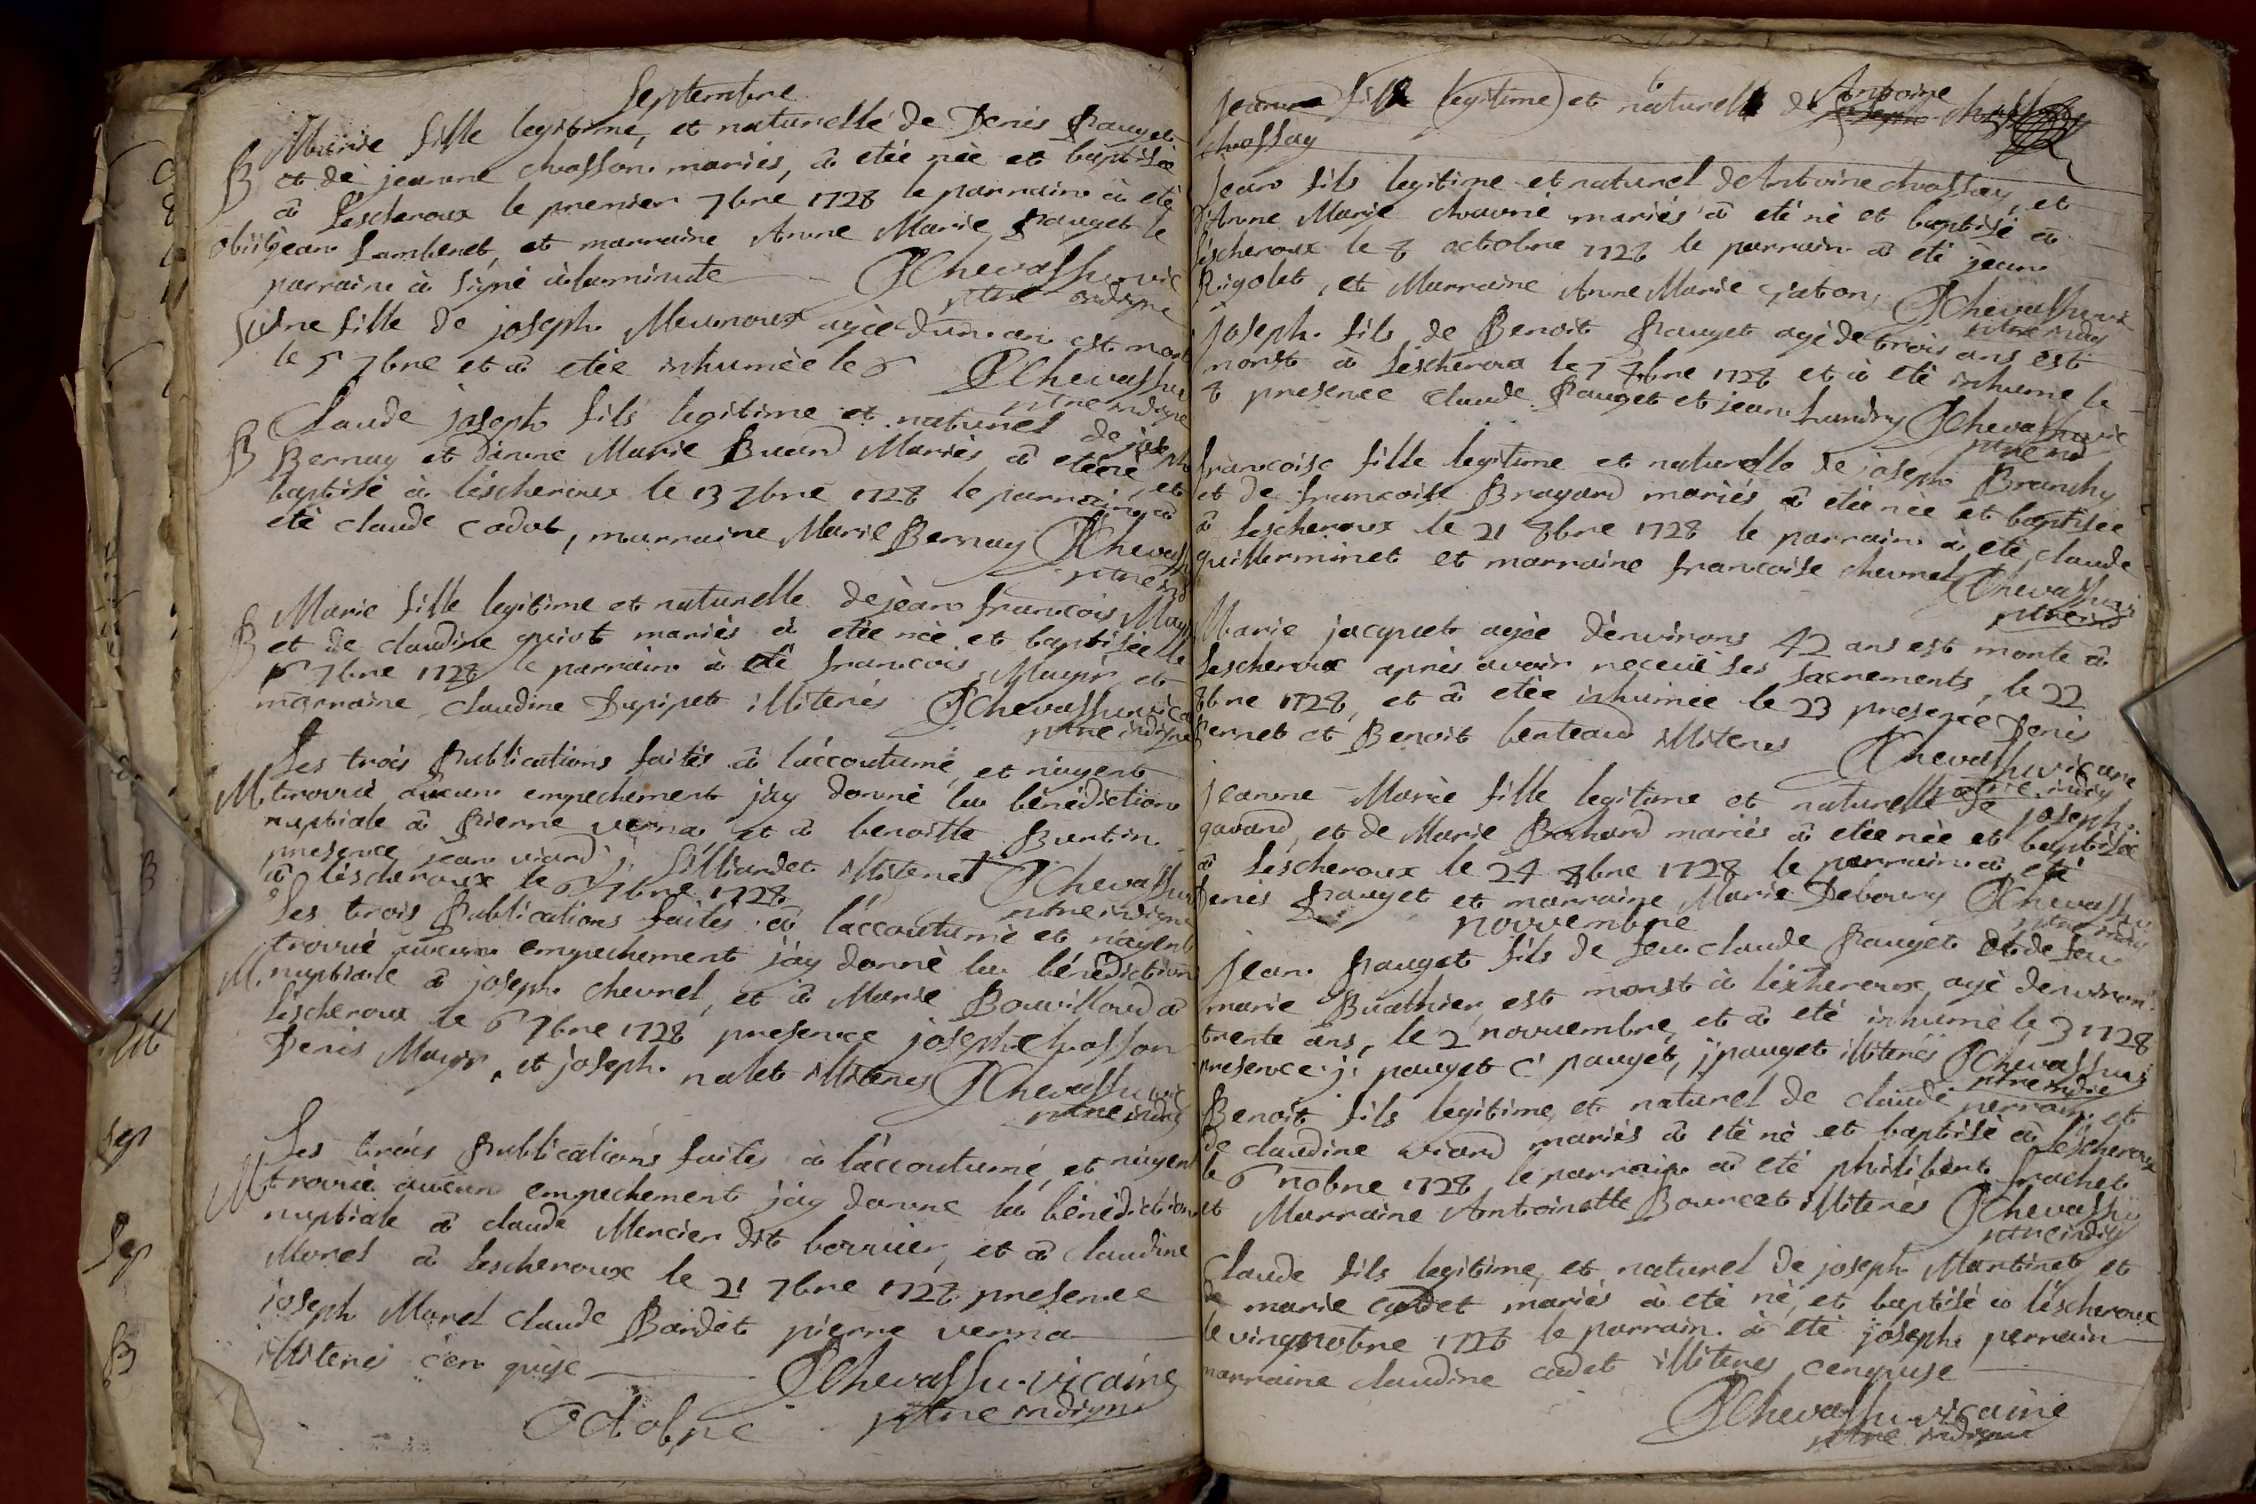 Septembre
B Marie fille legitime, et naturelle de Denis Pauget
et de jeanne chasson mariés, à etée née et baptisée
à Lescheroux le premier 7bre 1728 le parrain à eté
obiit jean Lamberet, et marraine Anne Marie Pauget le
parrain à signé à la minute JChevassu vic
ptre indigne
fille de joseph Meunoux agée d'un an est morte
le 5 7bre et à etée inhumée le 6 JChevassu
ptre indigne
Claude joseph fils legitime et naturel de joseph
B Bernay et d'anne Marie Buand Mariés, à eté né et
baptisé à léscheroux le 13 7bre 1728 le parrain à
eté claude cadot, marraine Marie Bernay JChevassu
ptre ind
Marie fille legitime et naturelle de jean francois Mayr
B et de claudine guiot mariés à etée née et baptisée le
6 7bre 1728 le parrain à eté francois Mayr, et
marraine claudine Dupipet illiterés JChevassu vica
ptre indigne
Les trois Publications faites à l'accoutumé, et n'ayent
M. trouvé aucun empechement j'ay donné la bénédiction
nuptiale à Pierre verna et à benoitte Burtin
presence jean viard, j. Lilliardet illiterés JChevassu
à léscheroux le 6 7bre 1728 ptre indigne
Les trois Publications faites à l'accoutumé et n'ayent
trouvé aucun empechement j'ay donné la bénédiction
M. nuptiale à joseph chevrel, et à Marie Bouvilloud à
léscheroux le 6 7bre 1728 presence joseph chasson
Denis Mayr, et joseph nalet illiterés JChevassu vic
ptre indig
Les trois Publications faites à l'accoutumé, et n'ayent
M trouvé aucun empechement j'ay donné la bénédiction
nuptiale à claude Mercier dit borrier, et à claudine
Morel à lescheroux le 21 7bre 1728 presence
joseph Morel claude Bardet pierre verna
illiterés c'en quise JChevassu vicaire
Octobre ptre indigne
Jeanne fille legitime et naturelle de Antoine
chassay
Jean fils legitime et naturel de Antoine chassay, et
d'Anne Marie chavrié mariés à eté né et baptisé à
léscheroux le 8 octobre 1728 le parrain à eté jean
Rigolet, et Marraine Anne Marie gaton, JChevassu vi
ptre indig
joseph fils de Benoit Pauget agé de trois ans est
mort à Lescheroux le 7 8bre 1728 et à eté inhumé le
8 presence claude Pauget et jean Landry JChevassu vic
ptre ind
francoise fille legitime et naturelle de joseph Branchy
et de francoise Brayard mariés à etée née et baptisée
à Lescheroux le 21 8bre 1728 le parrain à eté claude
guillerminet et marraine francoise chevrel JChevassu vi
ptre ind
Marie jacquet agée d'environs 42 ans est morte à
Lescheroux après avoir receüe ses sacrements, le 22
8bre 1728, et à etée inhumée le 23 presence Denis
Pernet et Benoit lenteaud illiterés JChevassu vicaire
ptre indig
Jeanne Marie fille legitime et naturelle de joseph
gavand, et de Marie Bochard mariés à etée née et baptisée
à Lescheroux le 24 8bre 1728 le parrain à eté
Denis Pauget et marraine Marie Debourg JChevassu
novvembre ptre indig
Jean Pauget fils de feu claude Pauget et de feu
marie Buathier, est mort à léscheroux agé denviron
trente ans, le 2 novvembre, et à eté inhumé le 3 1728
presence j. pauget c. pauget, j. pauget illiterés JChevassu vi
ptre indig
Benoit fils legitime, et naturel de claude perrain et
de claudine viard mariés à eté né et baptisé à léscheroux
le 6 nobre 1728 le parrain à eté philibert frachet
et Marraine Antoinette Bourcet illiterés JChevassu
ptre indig
Claude fils legitime, et naturel de joseph Martinet et
de marie cadet mariés à eté né, et baptisé à léscheroux
le vingt nobre 1728 le parrain à eté joseph perrain
marraine claudine cadet illiterés cenquise
JChevassu vicaire
ptre indigne